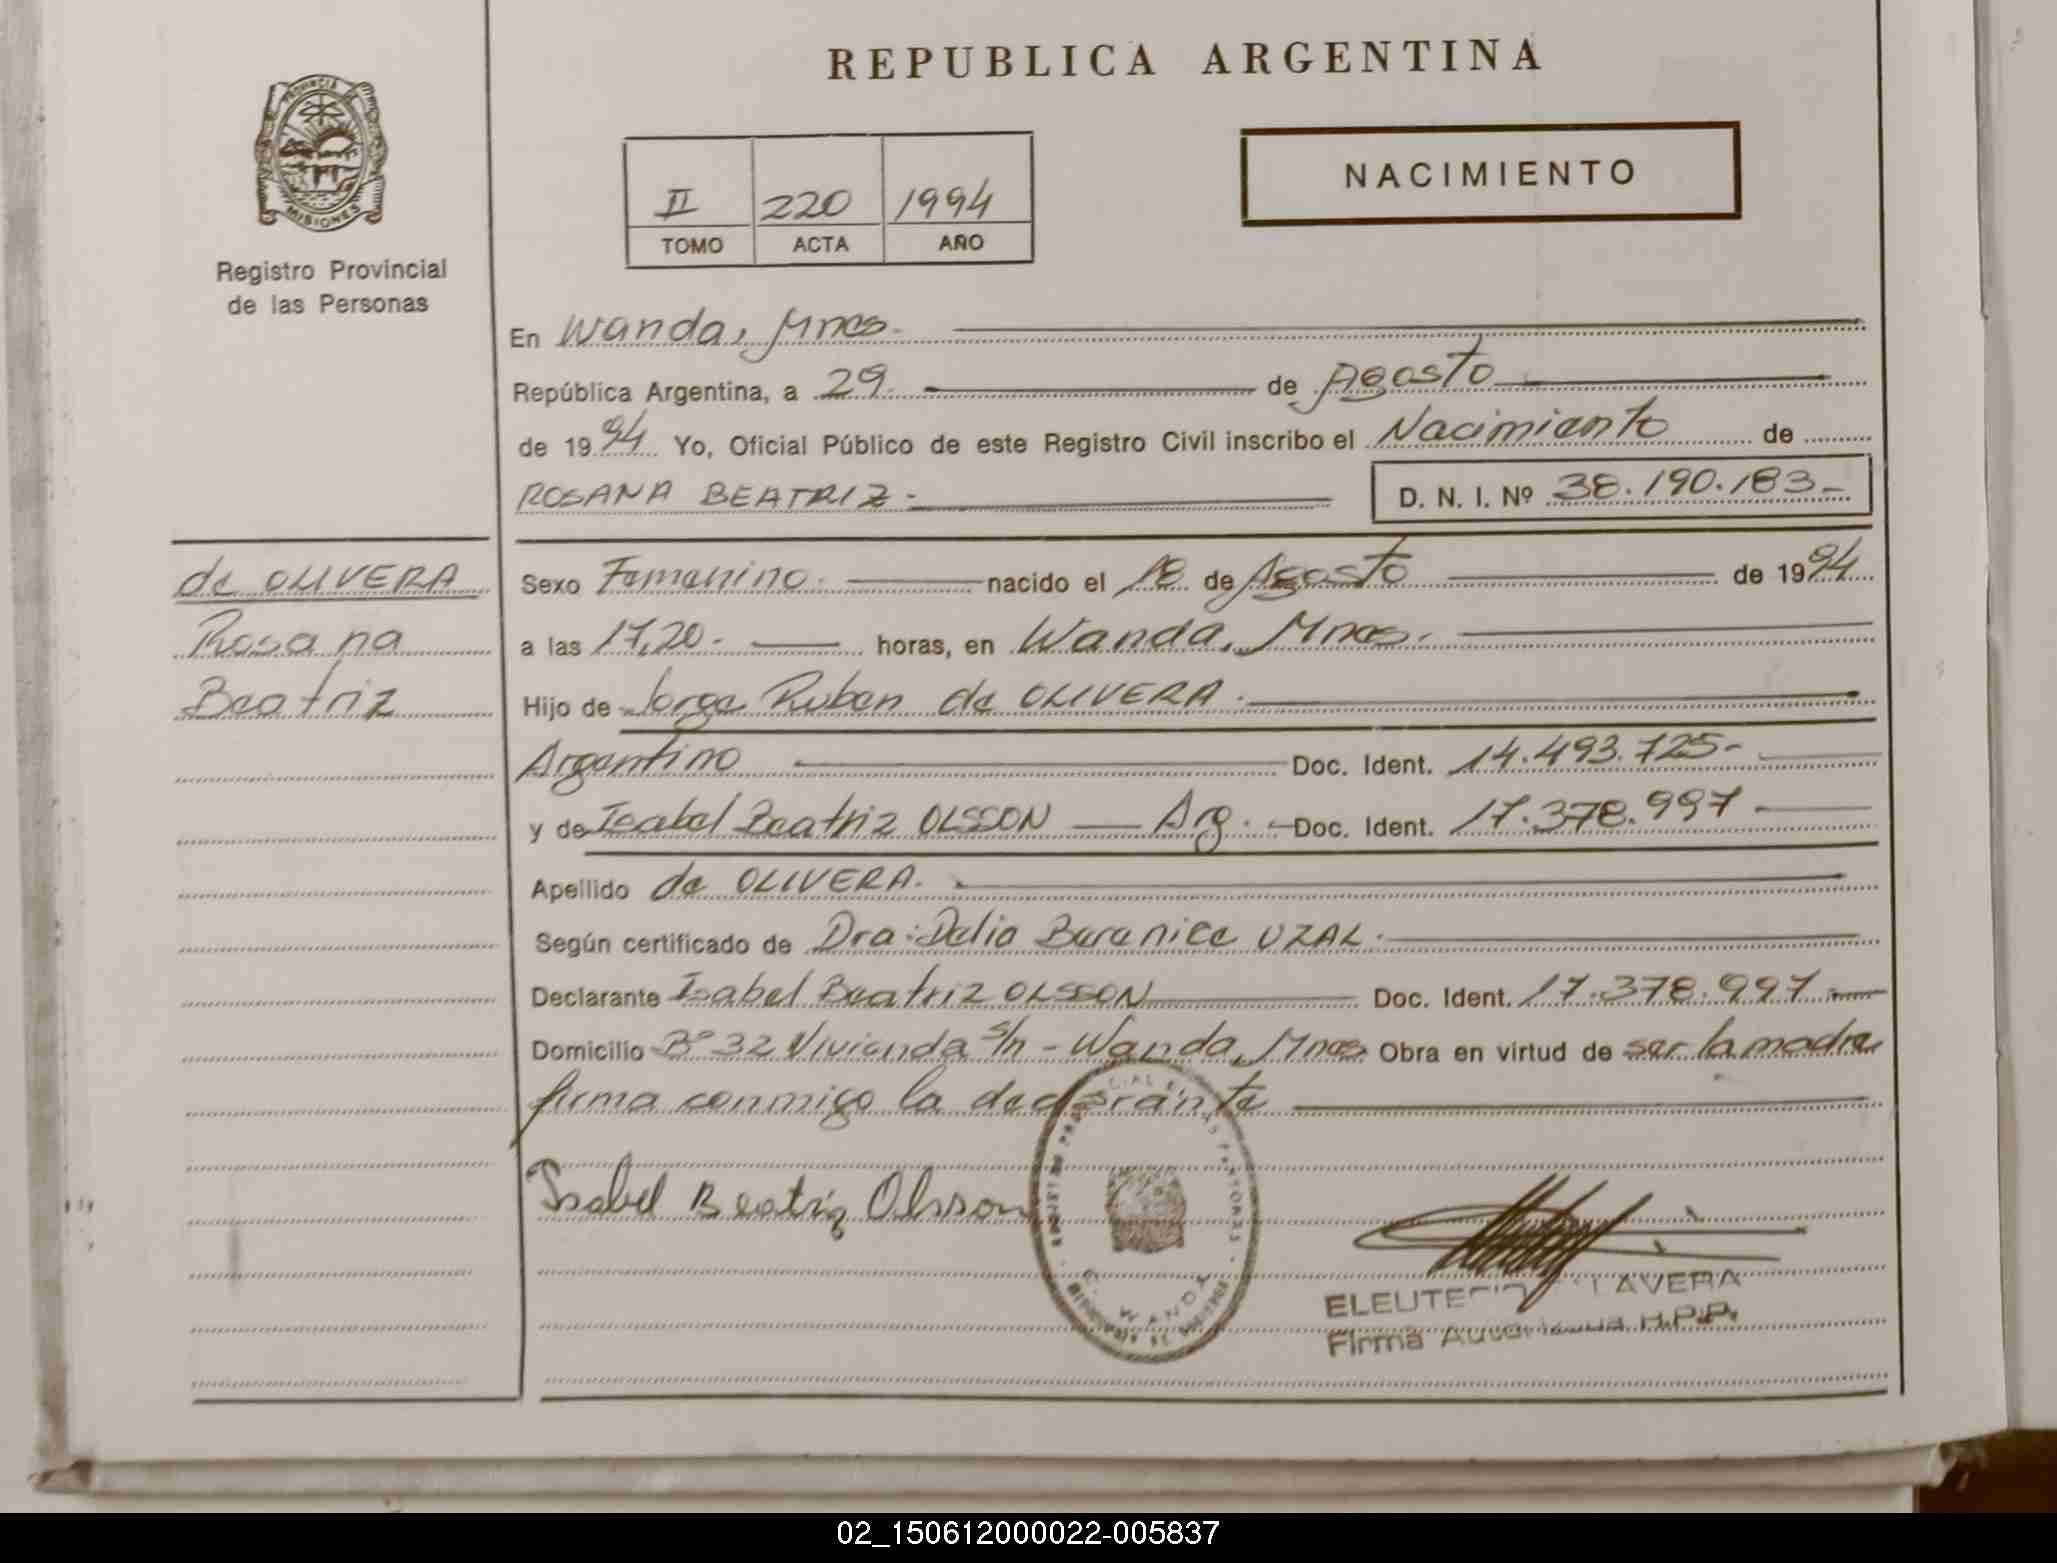 REPUBLICA ARGENTINA
PROVINCIA DE
MISIONES
Registro Provincial
de las Personas
II 220 1994
TOMO ACTA AÑO
NACIMIENTO
En Wanda, Mnes.
República Argentina, a 29 de Agosto
de 1994 Yo, Oficial Público de este Registro Civil inscribo el Nacimiento de
ROSANA BEATRIZ.- D. N. I. Nº 38.190.183-
de OLIVERA
Rosana
Beatriz
Sexo Femenino. nacido el 18 de Agosto de 1994
a las 17,20.- horas, en Wanda, Mnes.
Hijo de Jorge Ruben de OLIVERA.
Argentino Doc. Ident. 14.493.725-
y de Isabel Beatriz OLSSON — Arg. - Doc. Ident. 17.378.997-
Apellido de OLIVERA.
Según certificado de Dra: Delia Berenice UZAL.
Declarante Isabel Beatriz OLSSON Doc. Ident. 17.378.997-
Domicilio Bº 32 Vivienda s/n - Wanda, Mnes. Obra en virtud de ser la madre
firma conmigo la declarante
Isabel Beatriz Olsson
WANDA
Firma H.P.P.
02_150612000022-005837